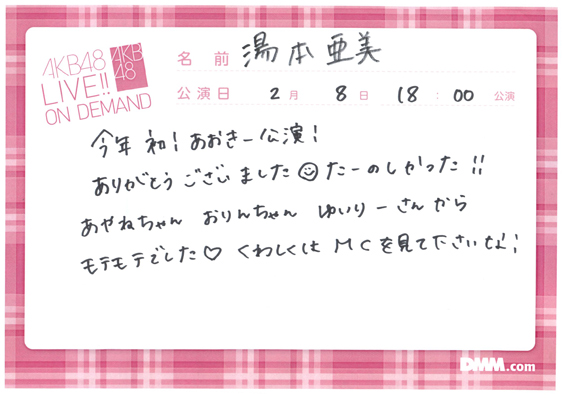 AKB48
LIVE!!
ON DEMAND
AKB
48
名前 湯本亜美
公演日 2月 8日 18:00 公演
今年初!あおきー公演!
ありがとうございました☺たーのしかった!!
あやねちゃん おりんちゃん ゆいりーさんから
モテモテでした♡ くわしくは MCを見て下さいな!
DMM.com